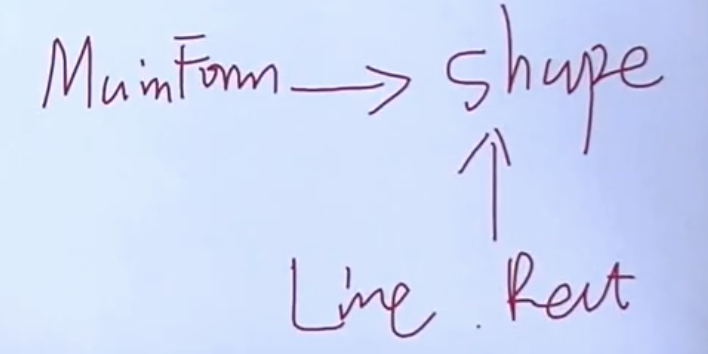 MainForm → Shape
↑
Line . Rect